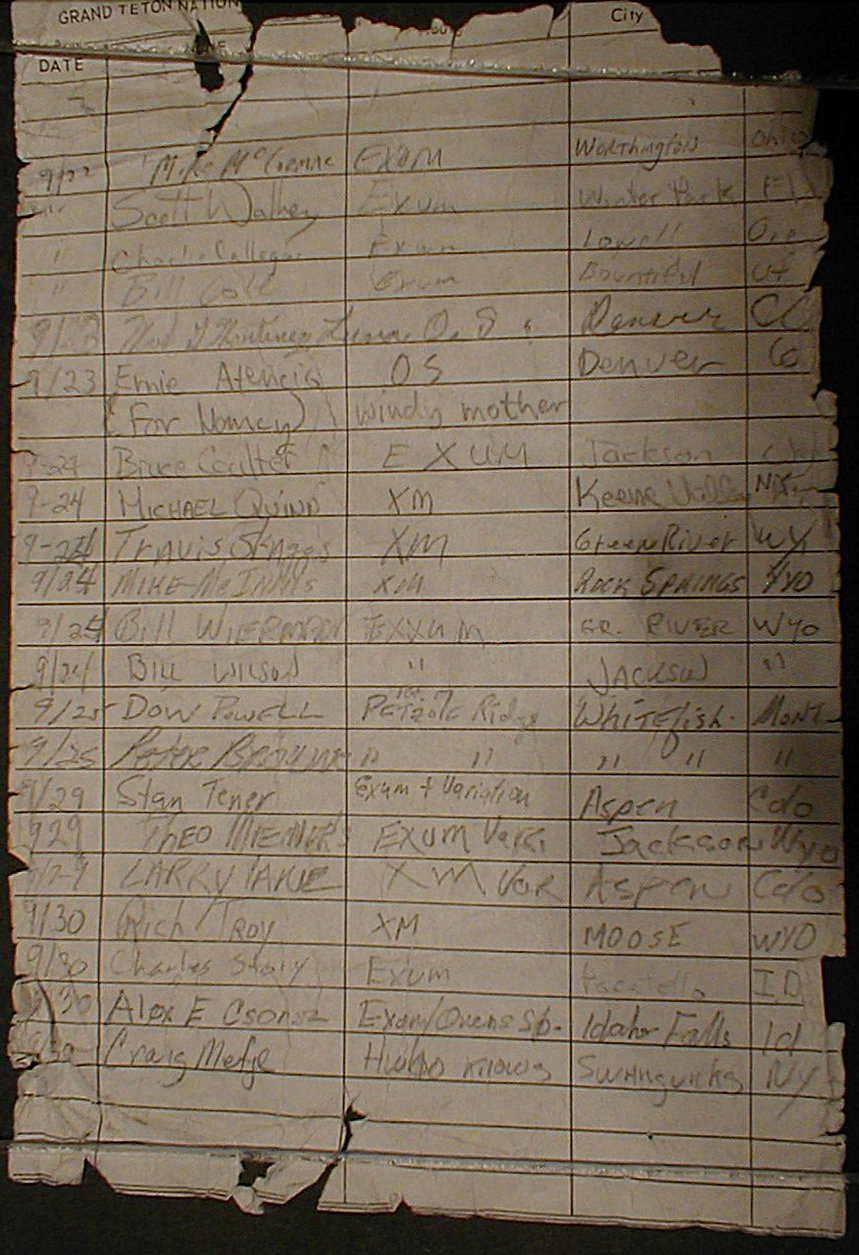 GRAND TETON NATION
City
DATE
9/22 Mike McCormac EXUM Worthington Ohio
Scott Exum Winter Park Fl
" Charlie Exum Lowell Ore
" Bill Exum Bountiful Ut
O. S. Denver CO
9/23 Ernie Atencio OS Denver Co
(For Nancy) windy mother
Bruce Coulter EXUM Jackson
9-24 MICHAEL QUINN XM Keene Valley
9-24 Travis Skaggs XM Green River WY
9/24 MIKE McINNIS XM ROCK SPRINGS WYO
9/24 Bill EXXUM GR. RIVER WYO
9/24 BILL WILSON " JACKSON "
9/25 DOW POWELL Ridge Whitefish. MONT
9/25 Peter " " " " "
9/29 Stan Tener Exum + Variation Aspen Colo
929 THEO EXUM Vari. Jackson Wyo
LARRY XM Var ASPEN Colo
9/30 Rich Troy XM MOOSE WYO
9/30 Charles Story Exum Pocatello ID
9/30 Alex E Exum/Owens Sp. Idaho Falls Id
Craig Who knows NY